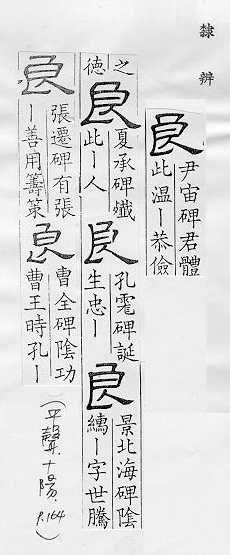 隸辨
良
尹宙碑君體
此温ー恭儉
之
德
良
夏承碑孅
此ー人
良
孔雩碑誕
生忠ー
良
景北海碑陰
繻ー字世騰
良
張遷碑有張
ー善用籌策
良
曹全碑陰功
曹王時孔ー
(平聲.十陽.P.164)